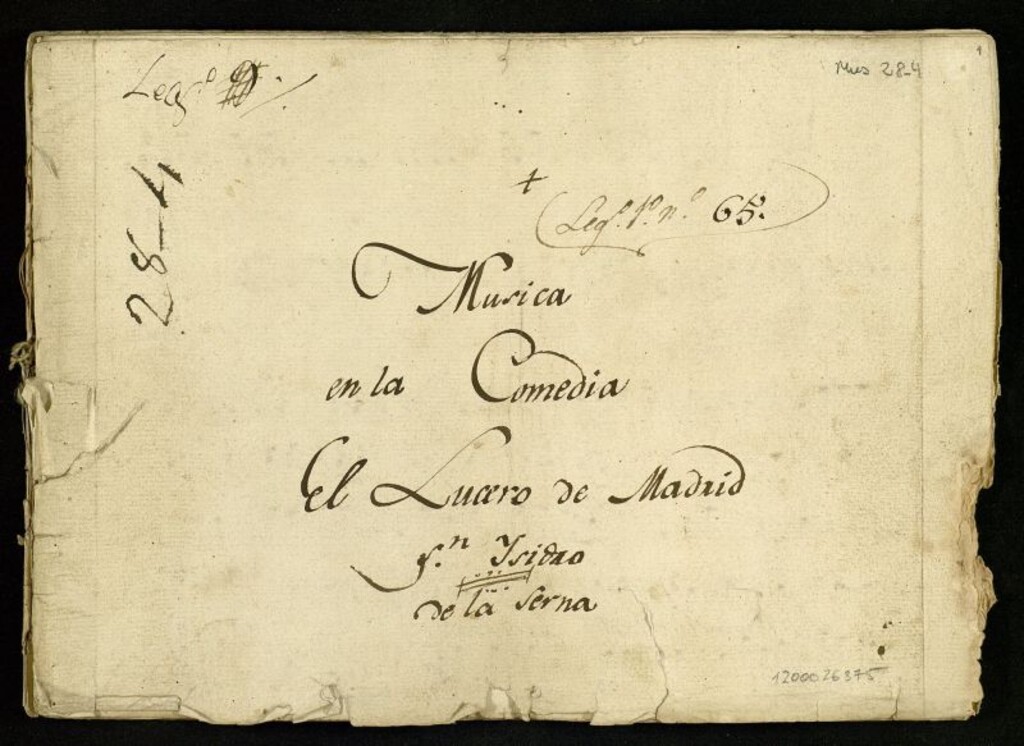 Leg.º
Mus 28-4
28-4
+
Leg.º 1.º n.º 65.
Musica
en la Comedia
El Lucero de Madrid
S.n Ysidro
de la Serna
1200026375